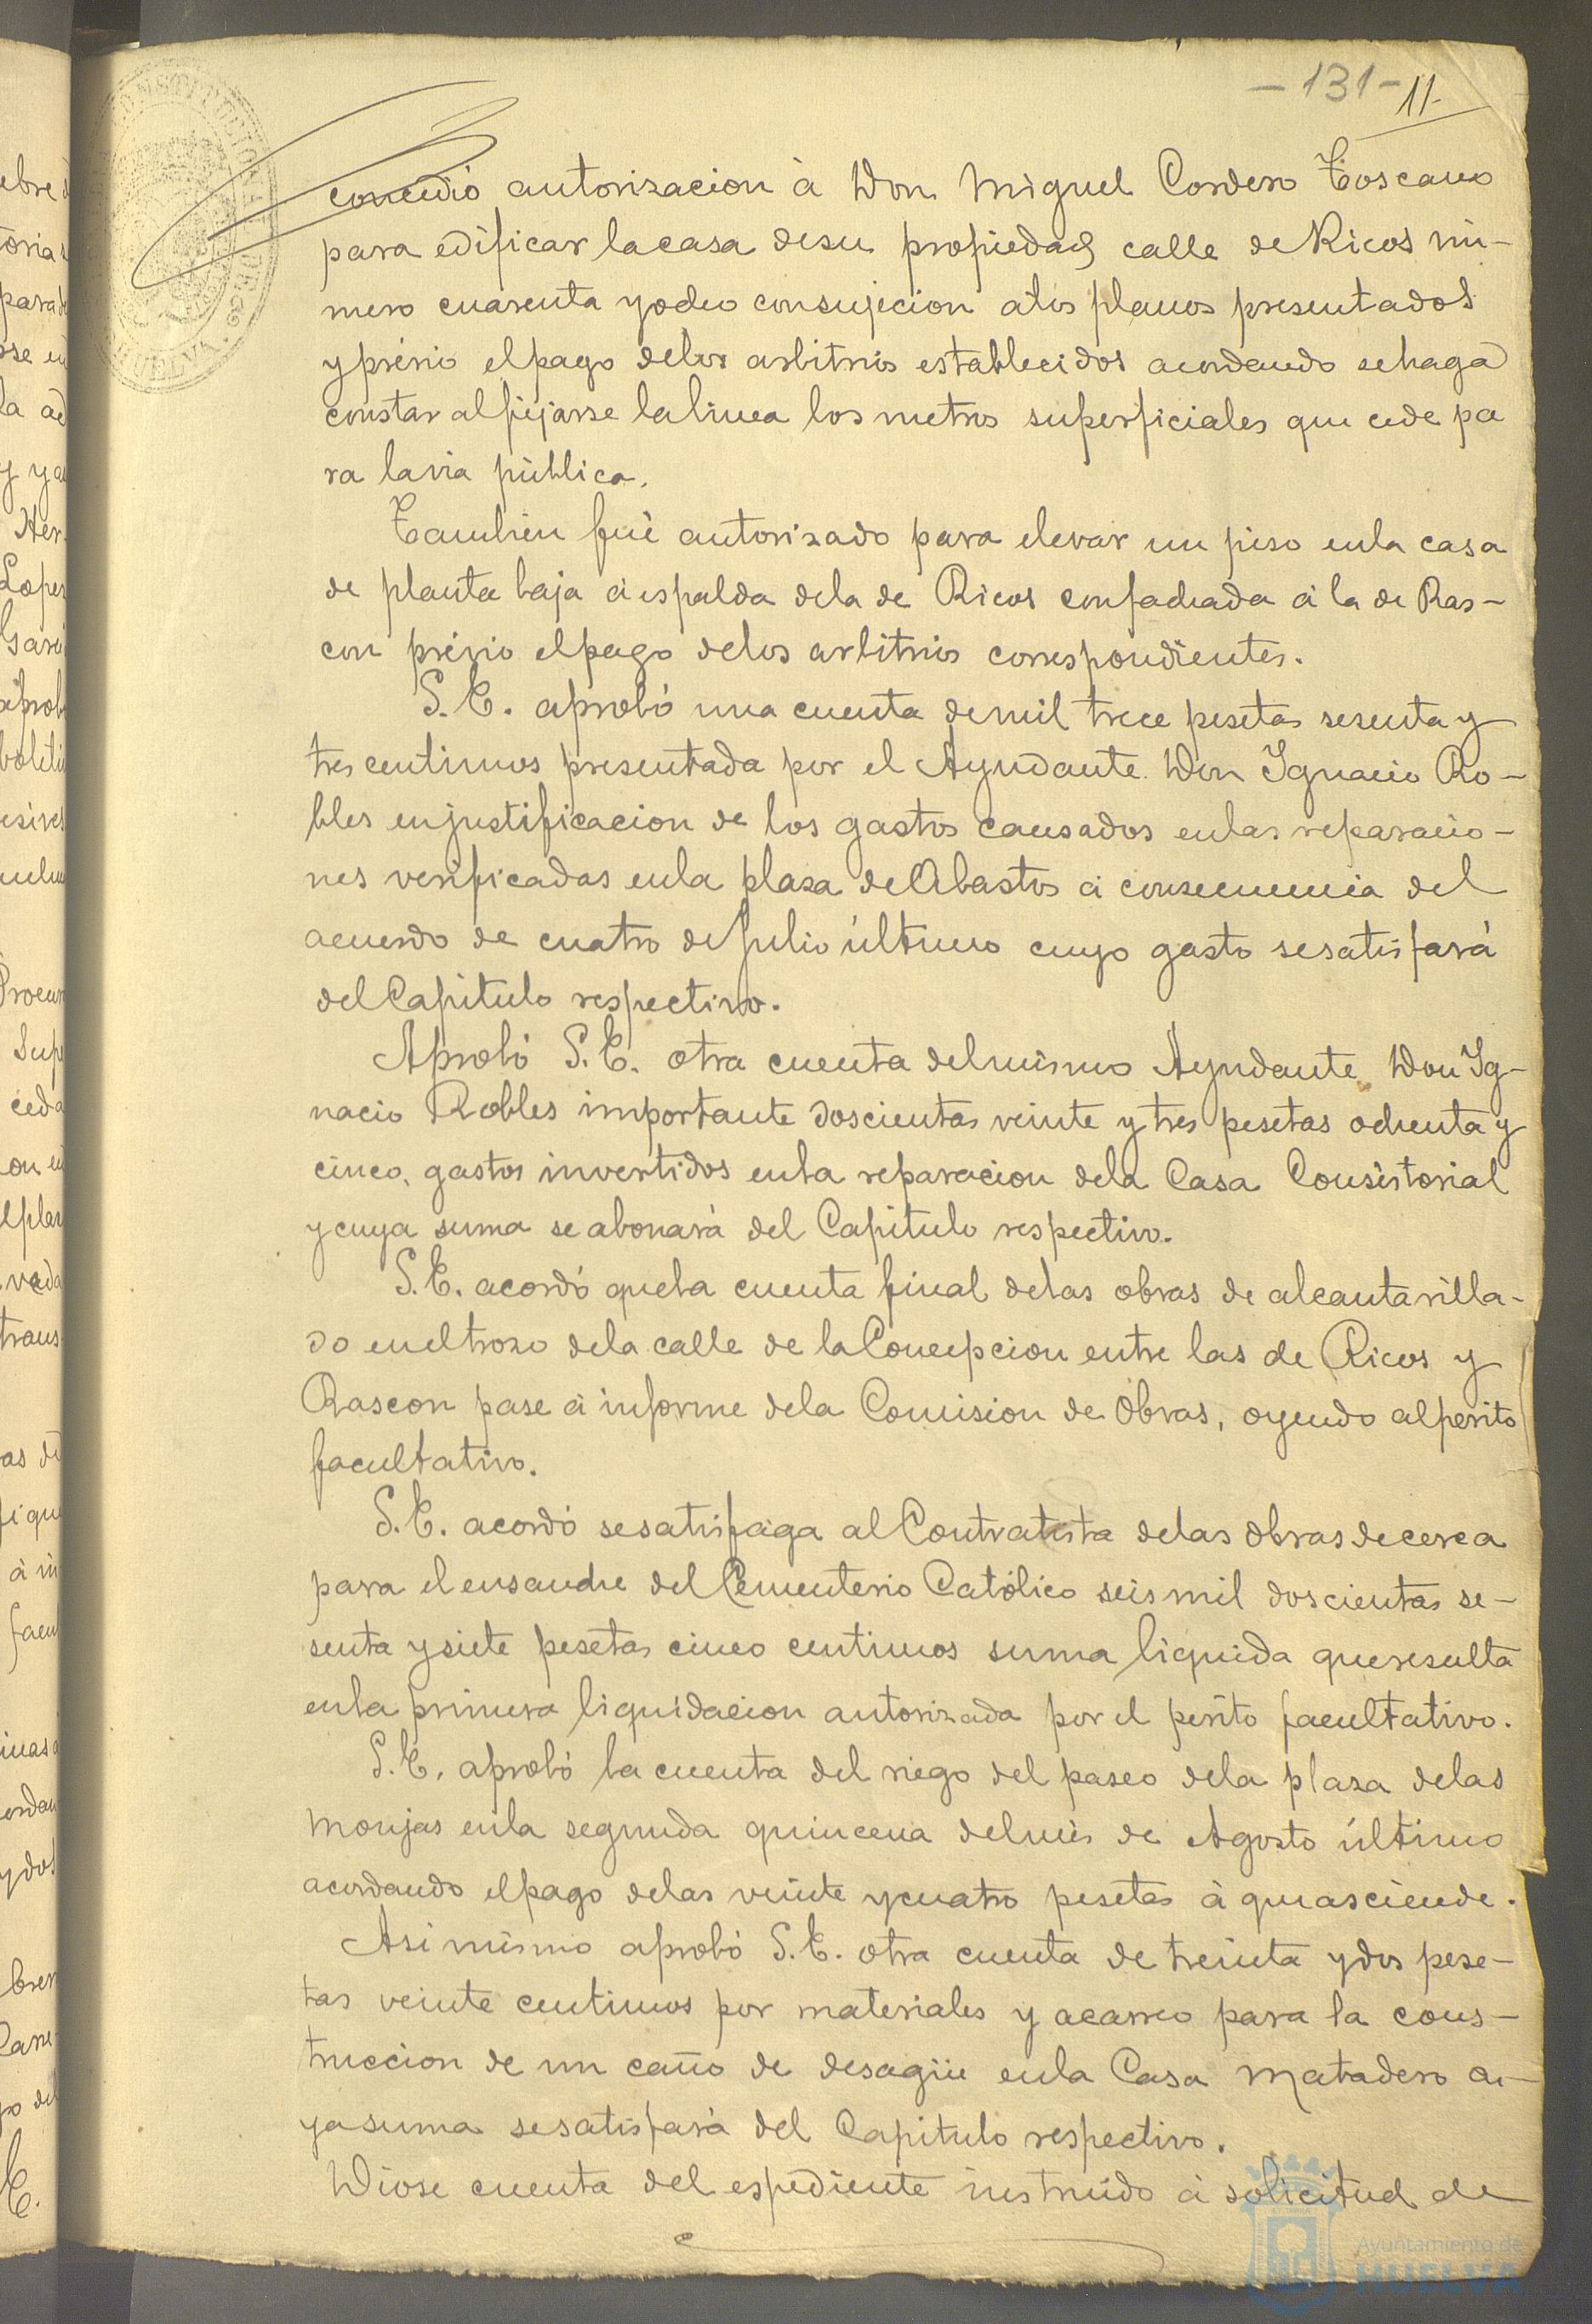 - 131 -
11-
concedió autorizacion à Don Miguel Cordero Toscano
para edificar la casa de su propiedad calle de Ricos nú-
mero cuarenta y ocho con sujecion a los planos presentados
y prévio el pago de los arbitrios establecidos acordando se haga
constar al fijarse la linea los metros superficiales que cede pa
ra la via pública.
Tambien fué autorizado para elevar un piso en la casa
de planta baja á espalda de la de Ricos con fachada á la de Ras-
con prévio el pago de los arbitrios correspondientes.
S. E. aprobó una cuenta de mil trece pesetas sesenta y
tres centimos presentada por el Ayudante Don Ignacio Ro-
bles en justificacion de los gastos causados en las reparacio-
nes verificadas en la plaza de Abastos á consecuencia del
acuerdo de cuatro de Julio último cuyo gasto se satisfará
del Capitulo respectivo.
Aprobó S. E. otra cuenta del mismo Ayudante Don Ig-
nacio Robles importante doscientas veinte y tres pesetas ochenta y
cinco, gastos invertidos en la reparacion de la Casa Consistorial
y cuya suma se abonará del Capitulo respectivo.
S. E. acordó que la cuenta final de las obras de alcantarilla-
do en el trozo de la calle de la Concepcion entre las de Ricos y
Rascon pase á informe de la Comision de Obras, oyendo al perito
facultativo.
S. E. acordó se satisfaga al Contratista de las obras de cerca
para el ensanche del Cementerio Católico seis mil doscientas se-
senta y siete pesetas cinco centimos suma liquida que resulta
en la primera liquidacion autorizada por el perito facultativo.
S. E. aprobó la cuenta del riego del paseo de la plaza de las
Monjas en la segunda quincena del mes de Agosto último
acordando el pago de las veinte y cuatro pesetas à que asciende.
Asi mismo aprobó S. E. otra cuenta de treinta y dos pese-
tas veinte centimos por materiales y acarreo para la cons-
truccion de un caño de desagüe en la Casa Matadero cu-
ya suma se satisfará del Capitulo respectivo.
Diose cuenta del espediente instruido á solicitud de
Ayuntamiento de
HUELVA